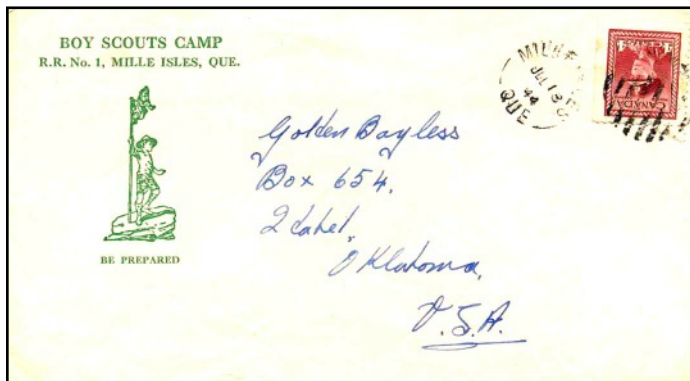 BOY SCOUTS CAMP
R.R. No. 1, MILLE ISLES, QUE.
BE PREPARED
JUL 13
44
QUE
CANADA
Golden Bayless
Box 654.
Idabel,
Oklahoma,
U.S.A.